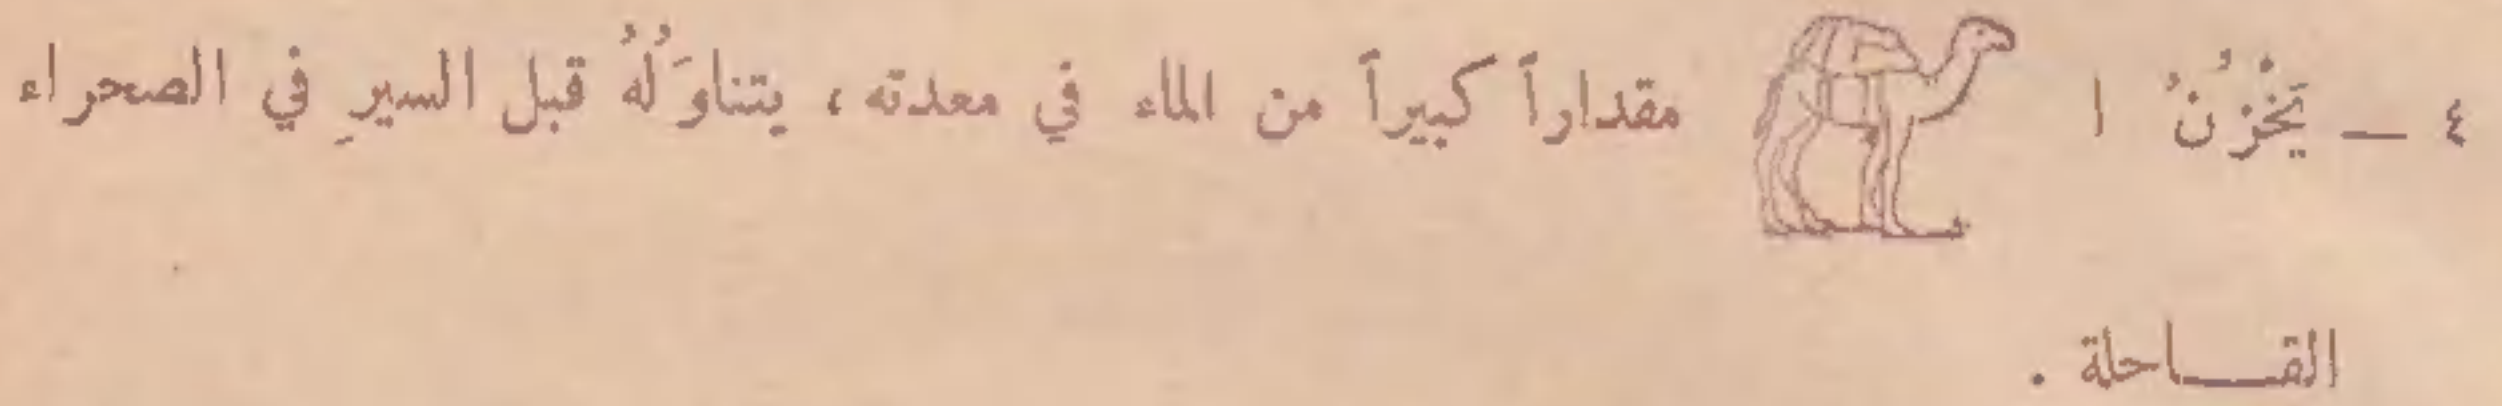 ٤ — يَخْزُنُ ا مقداراً كبيراً من الماء في معدته ، يتناوَلُهُ قبل السيرِ في الصحراء
القـــاحلة .